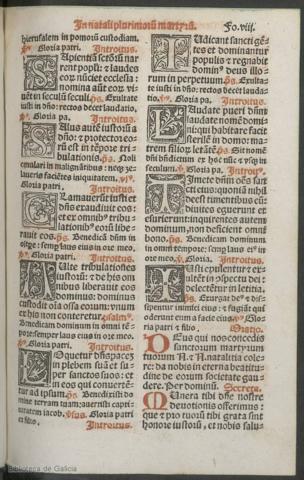 In natali plurimorū martyrū. Fo.viij.
hierusalem in pomorū custodiam.
ps̄. Gloria patri. Introitus.
SApientiā sctōrū nar
rent populi: et laudes
eoꝝ nūciet ecclesia:
nomina aūt eoꝝ vi
uēt in seculū seculi. ps̄. Exultate
iusti in dn̄o: rectos decet laudatio.
ps̄. Gloria pa. Introitus.
SAlus autē iustorū a
dn̄o: et protector eo-
rū est in tēpore tri-
bulationis. ps̄. Noli
emulari in malignātibus: neqꝫ ze-
laueris faciētes iniquitatem. ps̄.
Gloria patri. Introitus.
CLamauerūt iusti et
dn̄s exaudiuit eos:
et ex omnibꝰ tribu-
lationibꝰ eorū libe-
rauit eos. ps̄. Benedicā dn̄m in
oī tp̄e: semper laus eius in ore meo.
ps̄. Gloria patri. Introitus.
MUlte tribulationes
iustorū: et de his om
nibus liberauit eos
dominus: dominus
custodit oīa ossa eorum: vnum
ex his non conteretur. psalmꝰ.
Benedicam dominum in omni tē-
pore: semper laus eius in ore meo.
ps̄. Gloria patri. Introitus.
LOquetur dn̄s pacē
in plebem suā et su-
per sanctos suos: et
in eos qui conuertē-
tur ad ipsum. ps̄. Benedixisti do-
mine terram tuam: auertisti capti-
uitatem iacob. vsus. Gloria patri
et filio. Introitus.
IUdicant sancti gē-
tes et dominantur
populis: et regnabit
dominꝰ deus illo-
rum in perpetuum. ps̄. Exultate
iusti in dn̄o: rectos decet laudatio.
ps̄. Gloria pa. Introitus.
LAudate pueri dn̄m
laudate nomē domi-
ni: qui habitare facit
sterilē in domo: ma-
trem filioꝝ letātē. ps̄. Sit nomē
dn̄i bn̄dictum ex hoc nūc et vsqꝫ in
seculum. ps̄. Gloria pa. Introitꝰ.
TImete dn̄m oēs san-
cti eius: quoniā nihil
deest timentibus eū:
diuites eguerunt et
esurierunt: inquirentes autem
dominum, non deficient omni
bono. ps̄. Benedicam dominum
in omni tempore: semp laus eiꝰ in
ore meo. ps̄. Gloria. Introitus.
IUsti epulentur et ex
ultēt in cōspectu dei:
delectētur in letitia.
ps̄. Exurgat deꝰ et dis
sipentur inimici eius: et fugiāt qui
oderunt eum a facie eius. ps̄. Glo-
ria patri et filio. Oratio.
DEus qui nos concedis
sanctorum martyrum
tuorum N. et N. natalitia cole-
re: da nobis in eterna beatitudi-
ne de eorum societate gau-
dere. Per dominū. Secreta.
MUnera tibi dn̄e nostre
deuotionis offerimus:
que et pro tuorū tibi grata sint
honore iustorū, et nobis salu-
Biblioteca de Galicia